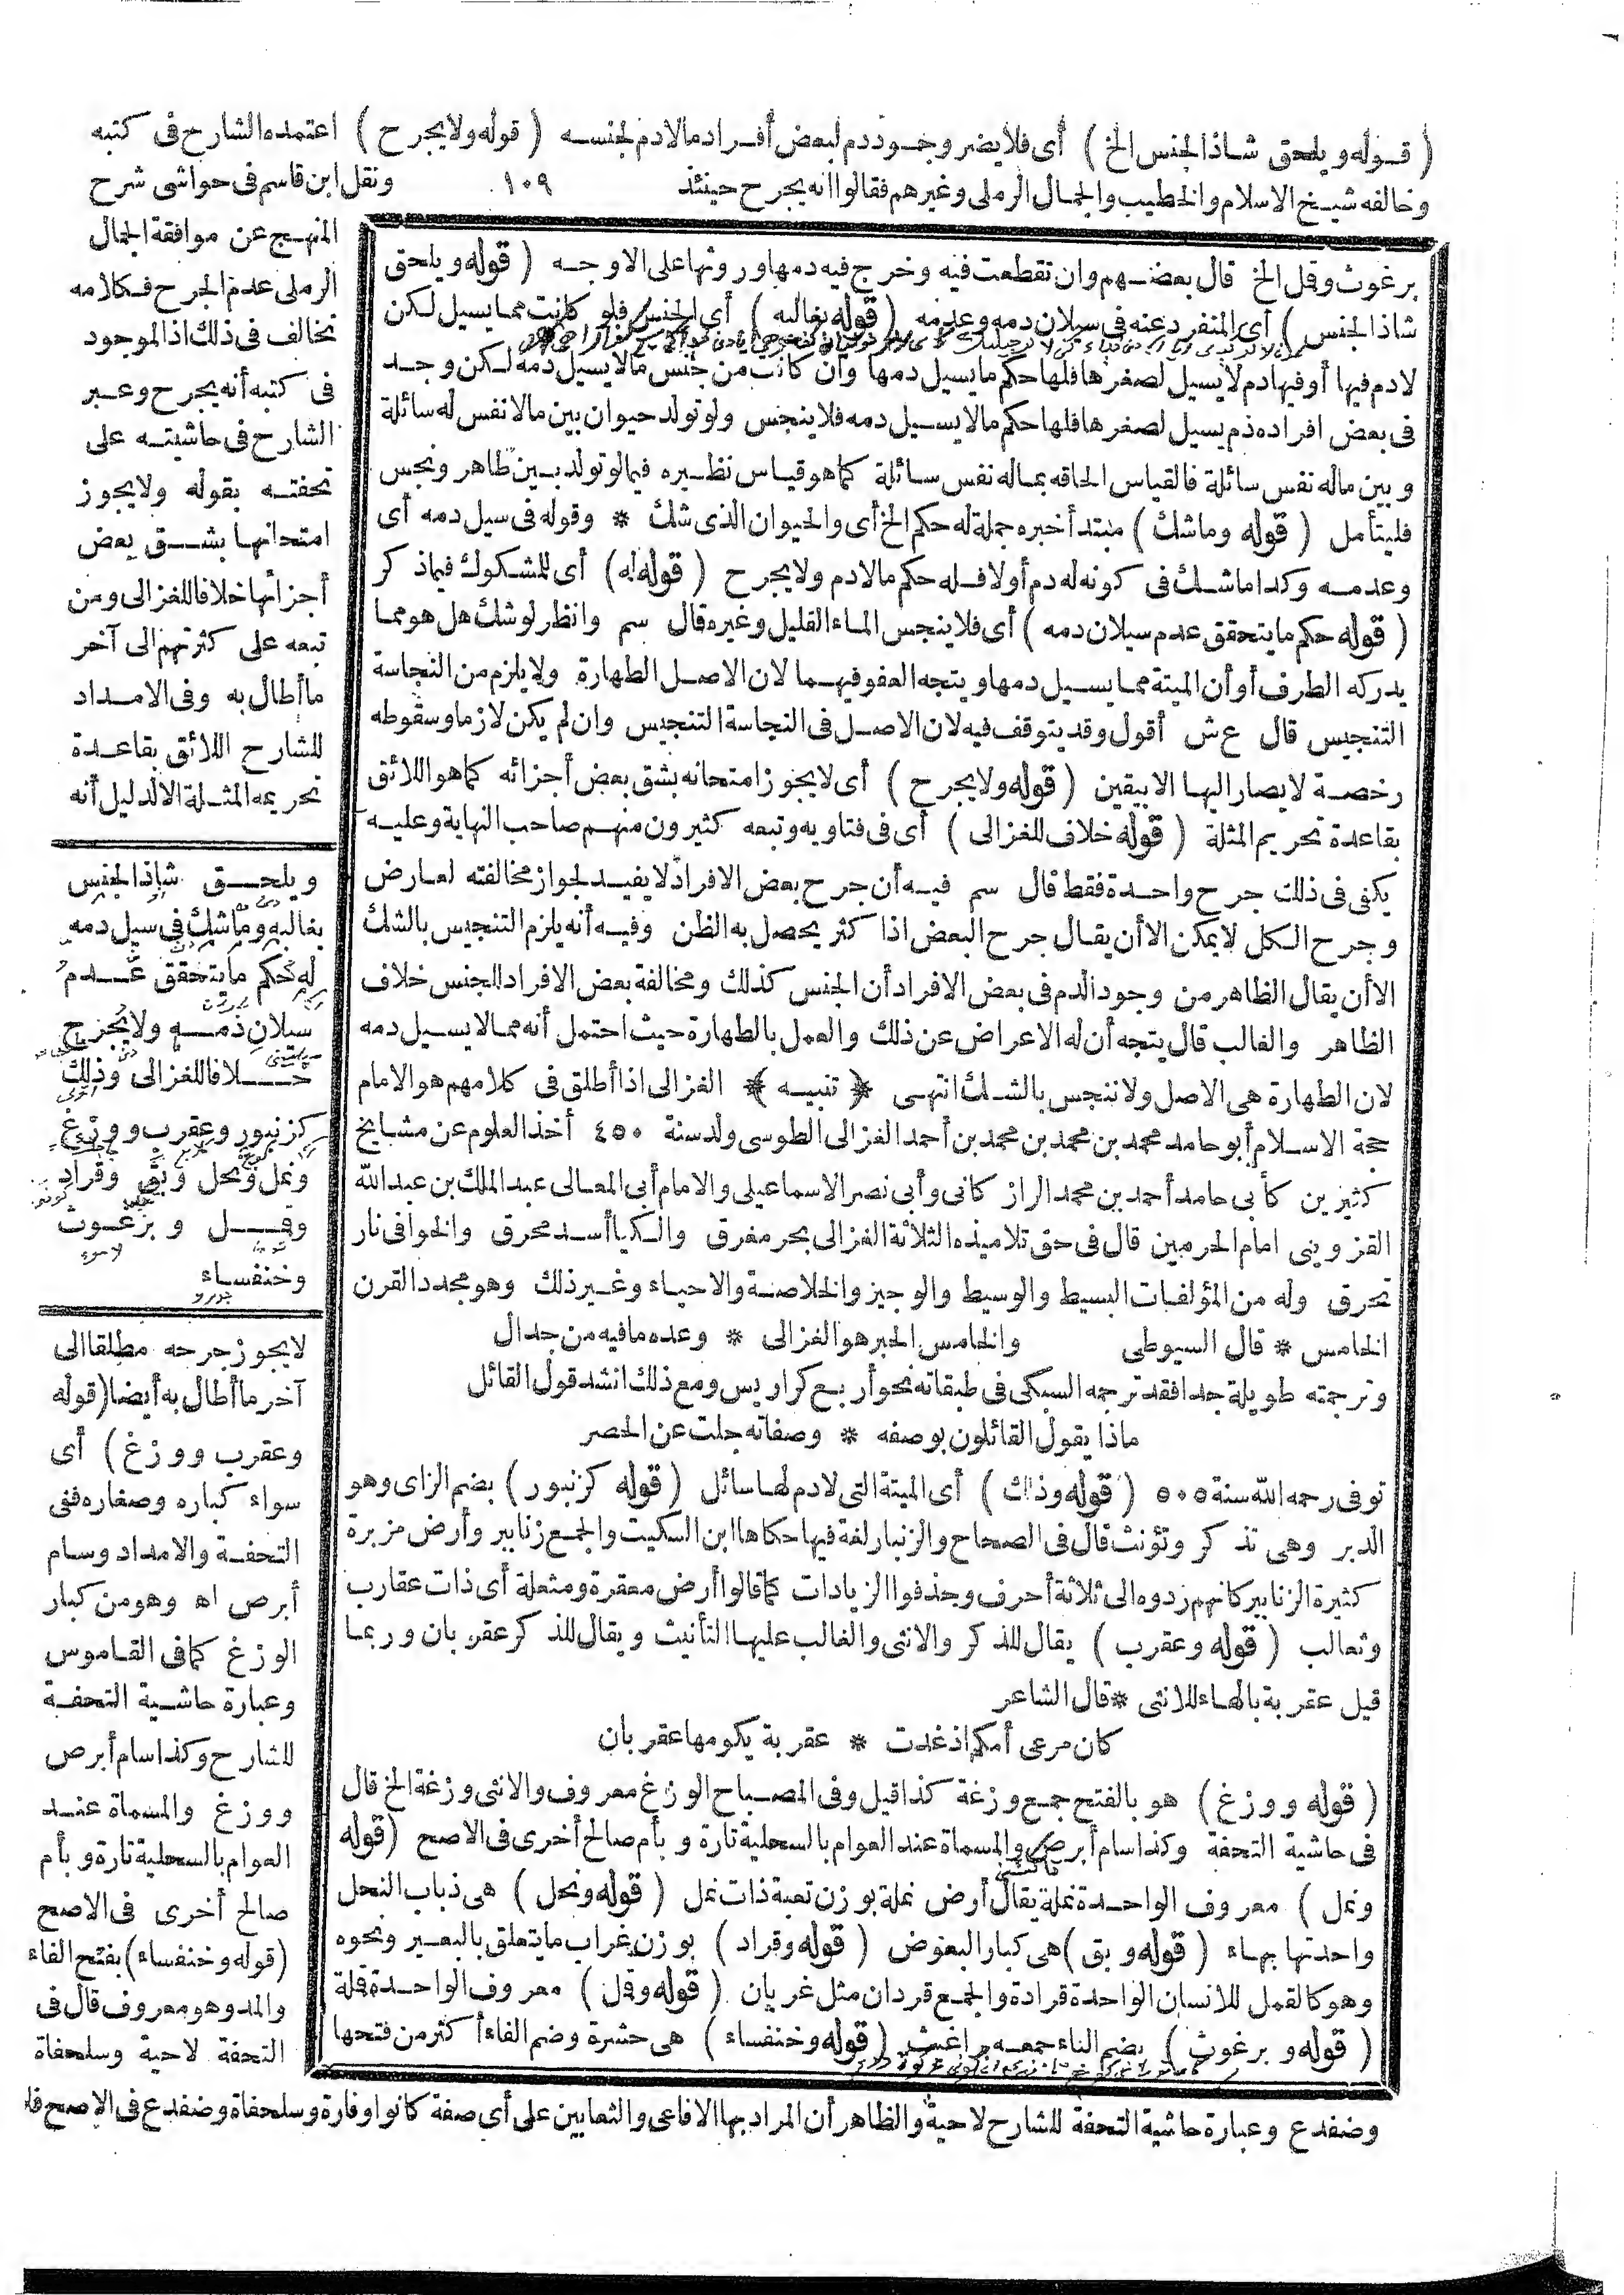 ( قوله ويلحق شاذ الجنس الخ ) أى فلا يضر وجود دم لبعض أفراد ما لا دم لجنسه ( قوله ولا يجرح ) اعتمده الشارح فى كتبه
وخالفه شيخ الاسلام والخطيب والجمال الرملى وغيرهم فقالوا انه يجرح حينئذ ١٠٩ ونقل ابن قاسم فى حواشى شرح
المنهج عن موافقة الجمال
الرملى عدم الجرح فكلامه
تخالف فى ذلك اذ الموجود
فى كتبه أنه يجرح وعبر
الشارح فى حاشيته على
تحفته بقوله ولا يجوز
امتحانها بشق بعض
أجزائها خلافا للغزالى ومن
تبعه على كثرتهم الى آخر
ما أطال به وفى الامداد
للشارح اللائق بقاعدة
تحريمه المثلة الا لدليل أنه
لا يجوز جرحه مطلقا الى
آخر ما أطال به أيضا (قوله
وعقرب ووزغ ) أى
سواء كباره وصغاره ففى
التحفة والامداد وسام
أبرص اه وهو من كبار
الوزغ كما فى القاموس
وعبارة حاشية التحفة
للشارح وكذا سام أبرص
ووزغ والمسماة عند
العوام بالسحلية تارة وبأم
صالح أخرى فى الاصح
(قوله وخنفساء) بفتح الفاء
والمد وهو معروف قال فى
التحفة لا حية وسلحفاة
وضفدع وعبارة حاشية التحفة للشارح لا حية والظاهر أن المراد بها الافاعى والثعابين على أى صفة كانوا وفارة وسلحفاة وضفدع فى الاصح
ويلحق شاذ الجنس
بغالبه وما شك فى سيل دمه
له حكم ما يتحقق عدم
سيلان دمه ولا يجرح
خلافا للغزالى وذلك
كزنبور وعقرب ووزغ
ونمل ونحل وبق وقراد
وقمل وبرغوث
وخنفساء
برغوث وقمل الخ قال بعضهم وان تقطعت فيه وخرج فيه دمها وروثها على الاوجه ( قوله ويلحق
شاذ الجنس ) أى المنفرد عنه فى سيلان دمه وعدمه ( قوله بغالبه ) أى الجنس فلو كانت مما يسيل لكن
لا دم فيها أو فيها دم لا يسيل لصغرها فلها حكم ما يسيل دمها وان كانت من جنس ما لا يسيل دمه لكن وجد
فى بعض افراده دم يسيل لصغرها فلها حكم ما لا يسيل دمه فلا ينجس ولو تولد حيوان بين ما لا نفس له سائلة
وبين ما له نفس سائلة فالقياس الحاقه بماله نفس سائلة كما هو قياس نظيره فيما لو تولد بين طاهر ونجس
فليتأمل ( قوله وما شك ) مبتدأ خبره جملة له حكم الخ أى والحيوان الذى شك * وقوله فى سيل دمه أى
وعدمه وكذا ما شك فى كونه له دم أو لا فله حكم ما لا دم ولا يجرح ( قوله له) أى للمشكوك فيما ذكر
( قوله حكم ما يتحقق عدم سيلان دمه ) أى فلا ينجس الماء القليل وغيره قال سم وانظر لو شك هل هو مما
يدركه الطرف أو أن الميتة مما يسيل دمها ويتجه العفو فيهما لان الاصل الطهارة ولا يلزم من النجاسة
التنجيس قال ع ش أقول وقد يتوقف فيه لان الاصل فى النجاسة التنجيس وان لم يكن لازما وسقوطه
رخصة لا يصار اليها الا بيقين ( قوله ولا يجرح ) أى لا يجوز امتحانه بشق بعض أجزائه كما هو اللائق
بقاعدة تحريم المثلة ( قوله خلاف للغزالى ) أى فى فتاويه وتبعه كثيرون منهم صاحب النهاية وعليه
يكفى فى ذلك جرح واحدة فقط قال سم فيه أن جرح بعض الافراد لا يفيد لجواز مخالفته لعارض
وجرح الكل لا يمكن الا أن يقال جرح البعض اذا كثر يحصل به الظن وفيه أنه يلزم التنجيس بالشك
الا أن يقال الظاهر من وجود الدم فى بعض الافراد أن الجنس كذلك ومخالفة بعض الافراد للجنس خلاف
الظاهر والغالب قال يتجه أن له الاعراض عن ذلك والعمل بالطهارة حيث احتمل أنه مما لا يسيل دمه
لان الطهارة هى الاصل ولا ننجس بالشك انتهى ﴿ تنبيه ﴾ الغزالى اذا أطلق فى كلامهم هو الامام
حجة الاسلام أبو حامد محمد بن محمد بن محمد بن أحمد الغزالى الطوسى ولد سنة ٤٥٠ أخذ العلوم عن مشايخ
كثيرين كأبى حامد أحمد بن محمد الراذكانى وأبى نصر الاسماعيلى والامام أبى المعالى عبد الملك بن عبد الله
القزوينى امام الحرمين قال فى حق تلاميذه الثلاثة الغزالى بحر مغرق والكيا أسد محرق والخوافى نار
تحرق وله من المؤلفات البسيط والوسيط والوجيز والخلاصة والاحياء وغير ذلك وهو مجدد القرن
الخامس * قال السيوطى والخامس الحبر هو الغزالى * وعده ما فيه من جدال
وترجمته طويلة جدا فقد ترجمه السبكى فى طبقاته نحو أربع كراريس ومع ذلك انشد قول القائل
ماذا يقول القائلون بوصفه * وصفاته جلت عن الحصر
توفى رحمه الله سنة ٥٠٥ ( قوله وذلك ) أى الميتة التى لا دم لها سائل ( قوله كزنبور ) بضم الزاى وهو
الدبر وهى تذكر وتؤنث قال فى الصحاح والزنبار لغة فيها حكاها ابن السكيت والجمع زنابير وأرض مزبرة
كثيرة الزنابير كانهم زدوه الى ثلاثة أحرف وحذفوا الزيادات كما قالوا أرض معقرة ومثعلة أى ذات عقارب
وثعالب ( قوله وعقرب ) يقال للذكر والانثى والغالب عليها التأنيث ويقال للذكر عقربان وربما
قيل عقربة بالهاء للانثى * قال الشاعر
كان مرعى أمكم اذ غدت * عقربة يكومها عقربان
( قوله ووزغ ) هو بالفتح جمع وزغة كذا قيل وفى المصباح الوزغ معروف والانثى وزغة الخ قال
فى حاشية التحفة وكذا سام أبرص والمسماة عند العوام بالسحلية تارة وبأم صالح أخرى فى الاصح (قوله
ونمل ) معروف الواحدة نملة يقال أرض نملة بوزن تعبة ذات نمل ( قوله ونحل ) هى ذباب النحل
واحدتها بهاء ( قوله وبق )هى كبار البعوض ( قوله وقراد ) بوزن غراب ما يتعلق بالبعير ونحوه
وهو كالقمل للانسان الواحدة قرادة والجمع قردان مثل غربان ( قوله وقمل ) معروف الواحدة قملة
( قوله وبرغوث ) بضم الباء جمعه براغيث ( قوله وخنفساء ) هى حشرة وضم الفاء أكثر من فتحها